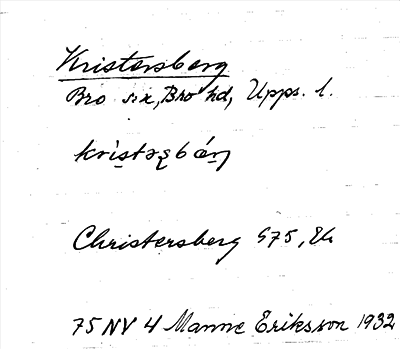 Kristersberg
Bro sn, Bro hd, Upps. l.
Christersberg 675,
75 NV 4 Manne Eriksson 1932